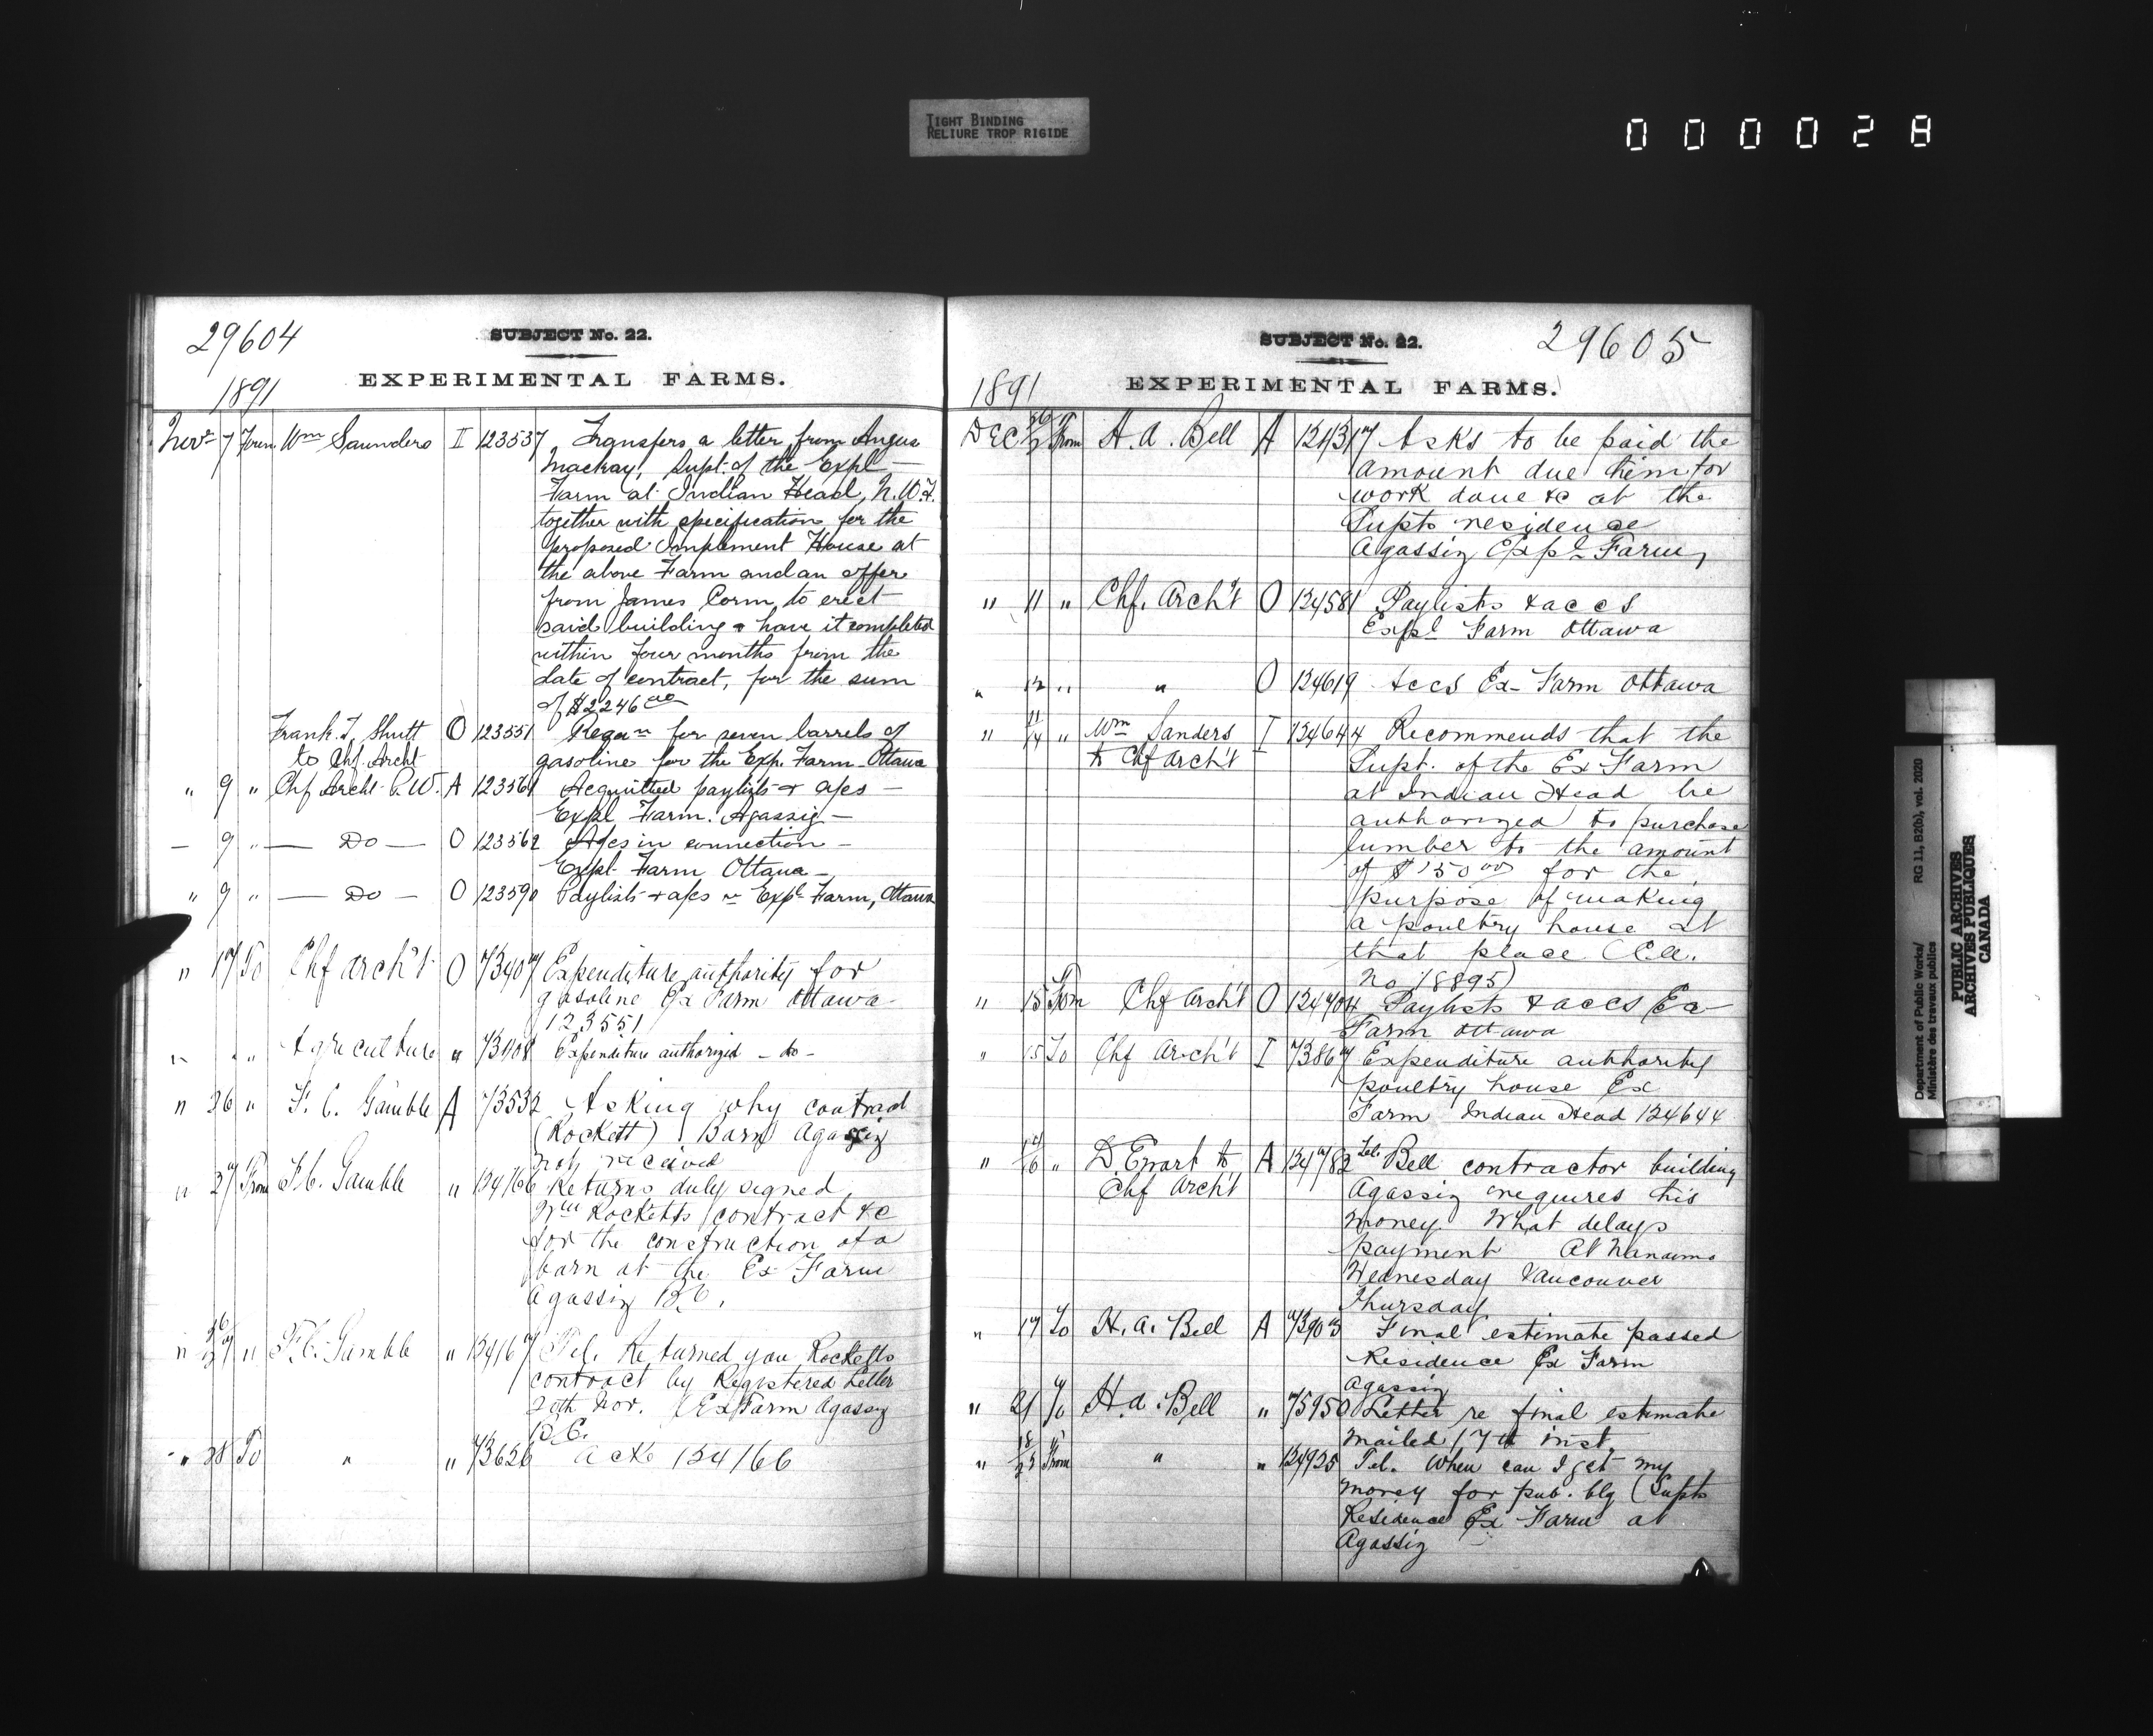 TIGHT BINDING
RELIURE TROP RIGIDE
000028
29604
SUBJECT No. 22.
1891
EXPERIMENTAL FARMS.
Novr 7 From Wm Saunders I 123537 Transfers a letter from Angus
Mackay, Supt. of the Expl
Farm at Indian Head, N.W.T.
together with specification for the
proposed Implement House at
the above Farm and an offer
from James Corm to erect
said building & have it completed
within four months from the
date of contract, for the sum
of $2246.00
Frank T. Shutt O 123551 Reqn for seven barrels of
to Chf. Archt gasoline for the Exp. Farm Ottawa
" 9 " Chf Archt P.W. A 123561 Acquitted paylists & a/cs —
Expl Farm. Agassiz —
— 9 " — Do — O 123562 A/cs in connection —
Expl Farm Ottawa —
" 9 " — Do — O 123590 Paylists & a/cs re Expl Farm, Ottawa
" 17 To Chf arch't O 73407 Expenditure authority for
gasoline Ex Farm Ottawa
123551
" " " Agriculture " 73408 Expenditure authorized - do -
" 26 " F. C. Gamble A 73532 Asking why contract
(Rockett) Barn Agassiz
not received
" 27 From F.C. Gamble " 134166 Returns duly signed
Wm Rocketts contract &c
for the construction of a
barn at the Ex Farm
Agassiz B.C.
" 26/27 " F.C. Gamble " 134167 Tel. Returned you Rocketts
contract by Registered Letter
20th Nov. (Ex Farm Agassiz
B.C.
" 28 To " " 73626 Ack 134166
SUBJECT No. 22.
29605
1891
EXPERIMENTAL FARMS.
DEC From H. A. Bell A 134317 Asks to be paid the
amount due him for
work done &c at the
Supts residence
Agassiz Expl Farm,
" 11 " Chf. Arch't O 134581 Paylists & accs
Expl Farm Ottawa
" 12 " " O 134619 Accs Ex Farm Ottawa
" 11/14 " Wm Sanders I 134644 Recommends that the
to Chf arch't Supt. of the Ex Farm
at Indian Head be
authorized to purchase
lumber to the amount
of $150.00 for the
purpose of making
a poultry house at
that place
No 18895)
" 15 From Chf Arch't O 134704 Paylists & accs Ex
Farm Ottawa
" 15 To Chf Arch't I 73867 Expenditure authority
poultry house Ex
Farm Indian Head 134644
" 16 " D. Ewart to A 134782 Tel. Bell contractor building
Chf Arch't Agassiz requires his
money. What delays
payment At Nanaimo
Wednesday Vancouver
Thursday
" 17 To H. A. Bell A 73903 Final estimate passed
Residence Ex Farm
Agassiz
" 21 To H. A. Bell " 75950 Letter re final estimate
mailed 17th inst.
" 18/23 From " " 134925 Tel. When can I get my
money for pub. blg (Supts
Residence Ex Farm at
Agassiz
Department of Public Works/
Ministère des travaux publics
RG 11, B2(b), vol. 2020
PUBLIC ARCHIVES
ARCHIVES PUBLIQUES
CANADA